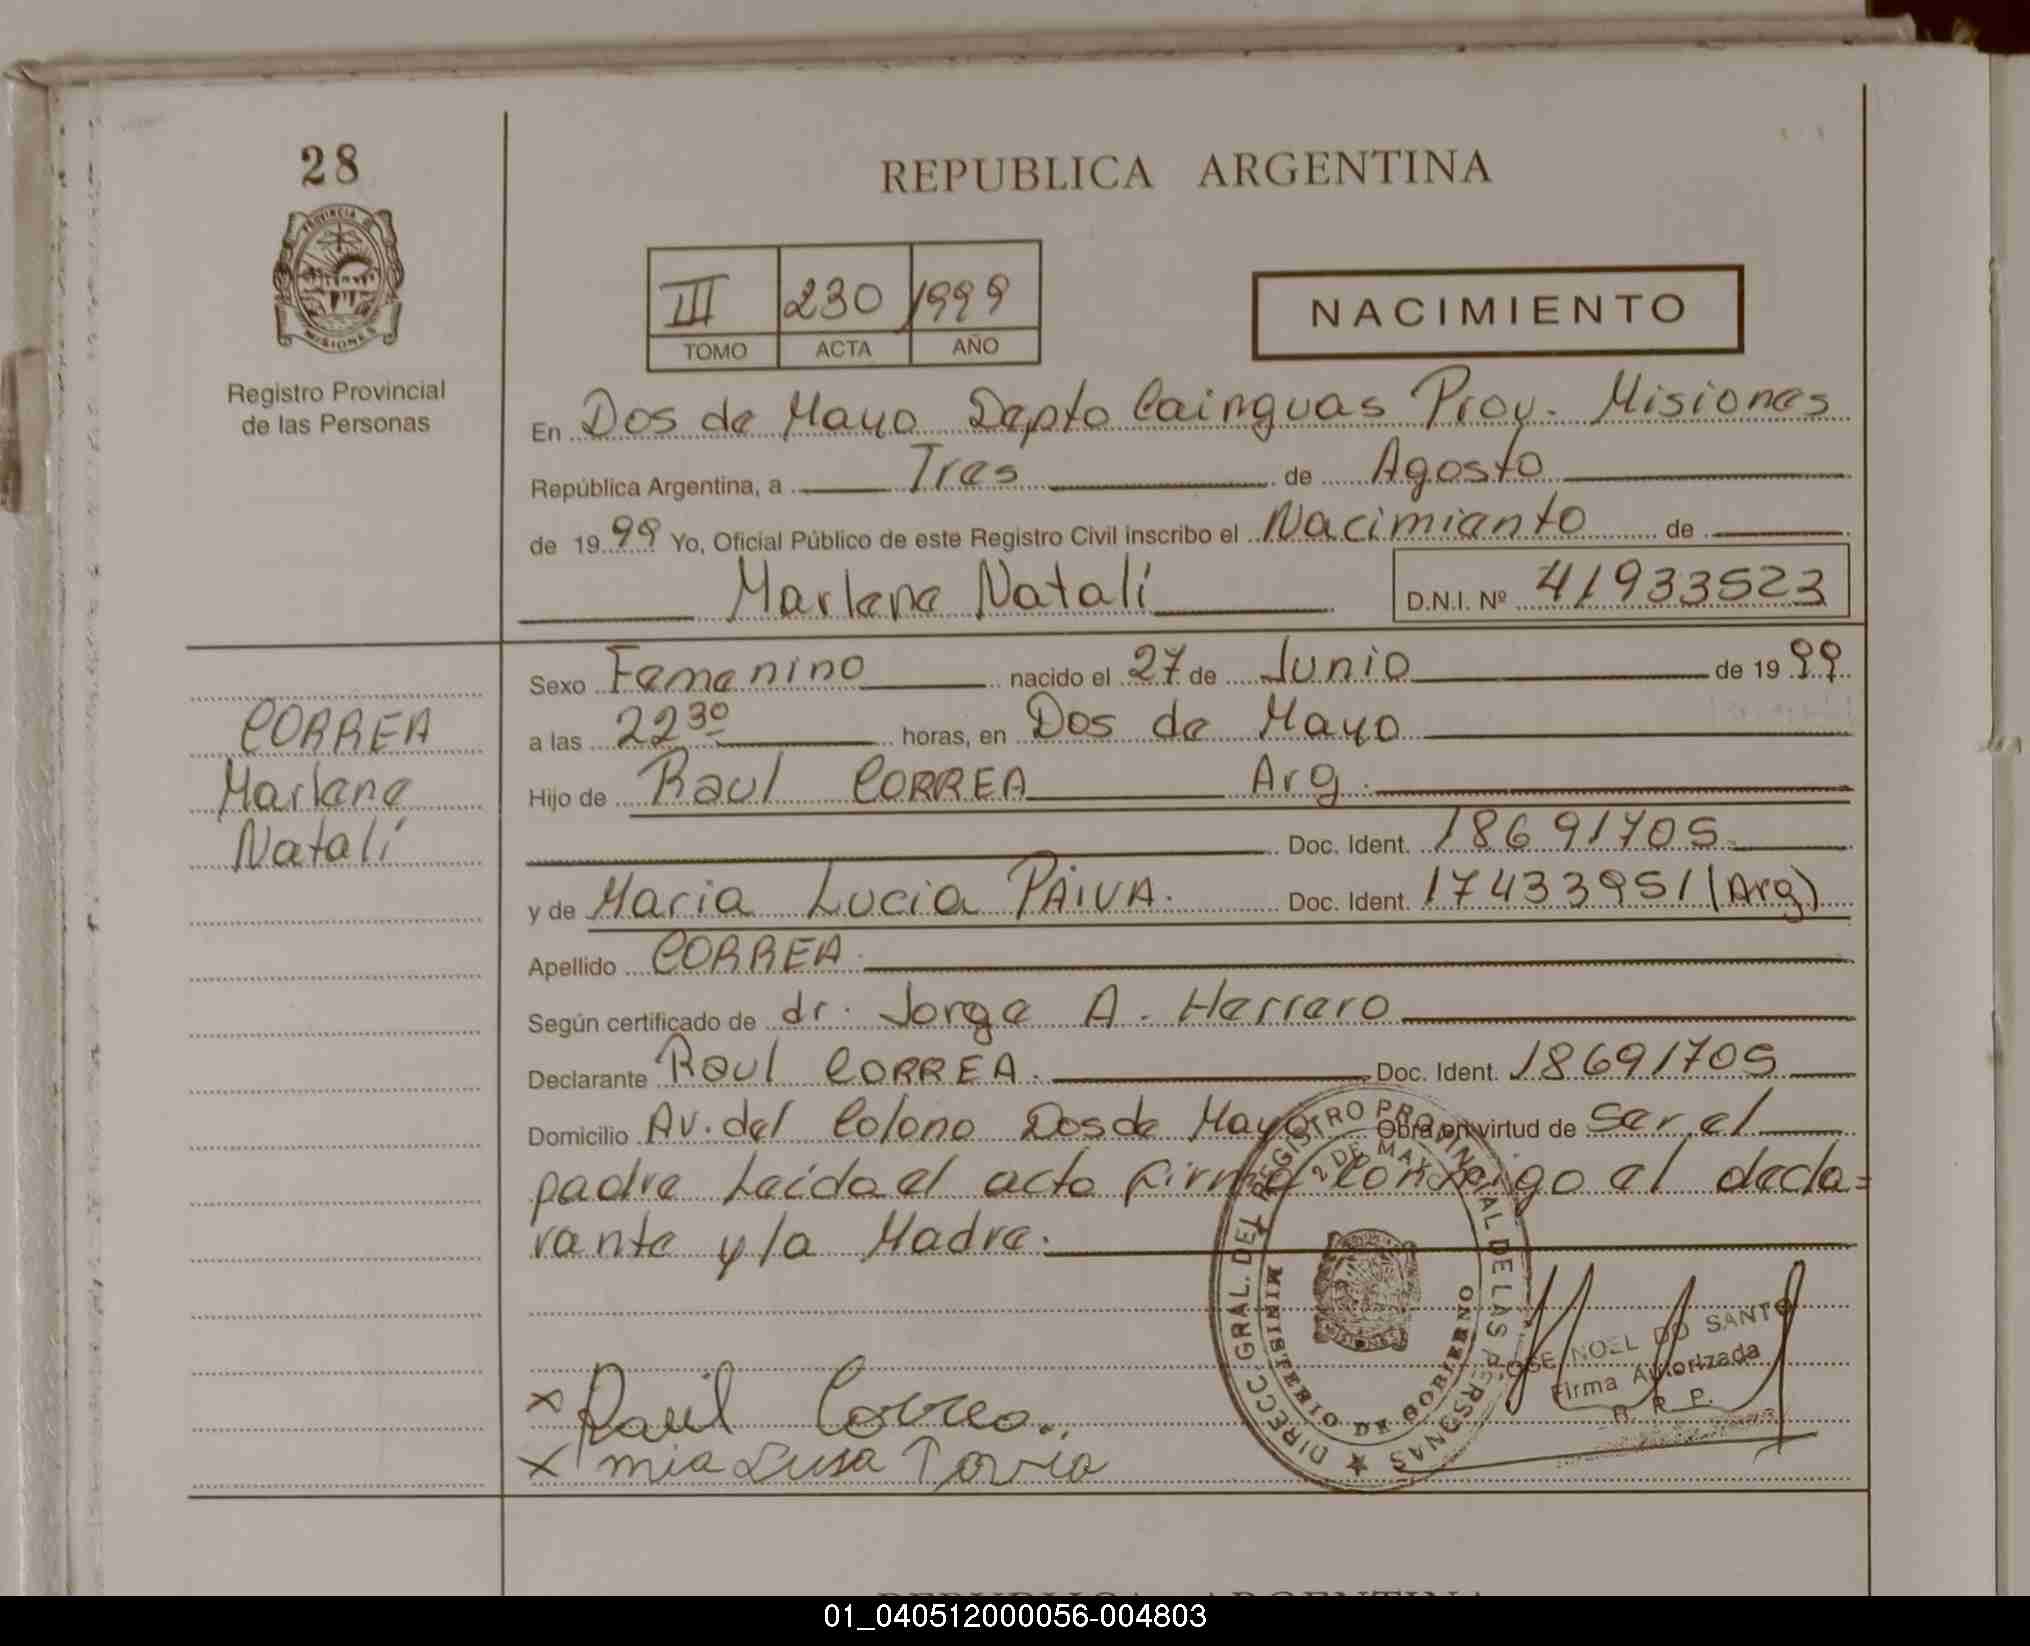 28
REPUBLICA ARGENTINA
PROVINCIA DE
MISIONES
III 230 1999
TOMO ACTA AÑO
NACIMIENTO
Registro Provincial
de las Personas
En Dos de Mayo Depto Cainguas Prov. Misiones
República Argentina, a Tres de Agosto
de 1999 Yo, Oficial Público de este Registro Civil inscribo el Nacimiento de
Marlene Natalí D.N.I. Nº 41933523
Sexo Femenino nacido el 27 de Junio de 1999
CORREA
Marlene
Natalí
a las 22 30 horas, en Dos de Mayo
Hijo de Raul CORREA Arg.
Doc. Ident. 18691705
y de Maria Lucia PAIVA. Doc. Ident. 17433951 (Arg)
Apellido CORREA.
Según certificado de dr. Jorge A. Herrero
Declarante Raul CORREA. Doc. Ident. 18691705
Domicilio Av. del Colono Dos de Mayo Obra en virtud de ser el
padre Leída el acta firma Conmigo el decla=
rante y la Madre.
DIRECC. GRAL. DEL REGISTRO PROVINCIAL DE LAS PERSONAS
2 DE MAYO
MINISTERIO DE GOBIERNO
JOSE NOEL DO SANTO
Firma Autorizada
R. P. P.
x Raúl Correa.
x
REPUBLICA ARGENTINA
01_040512000056-004803